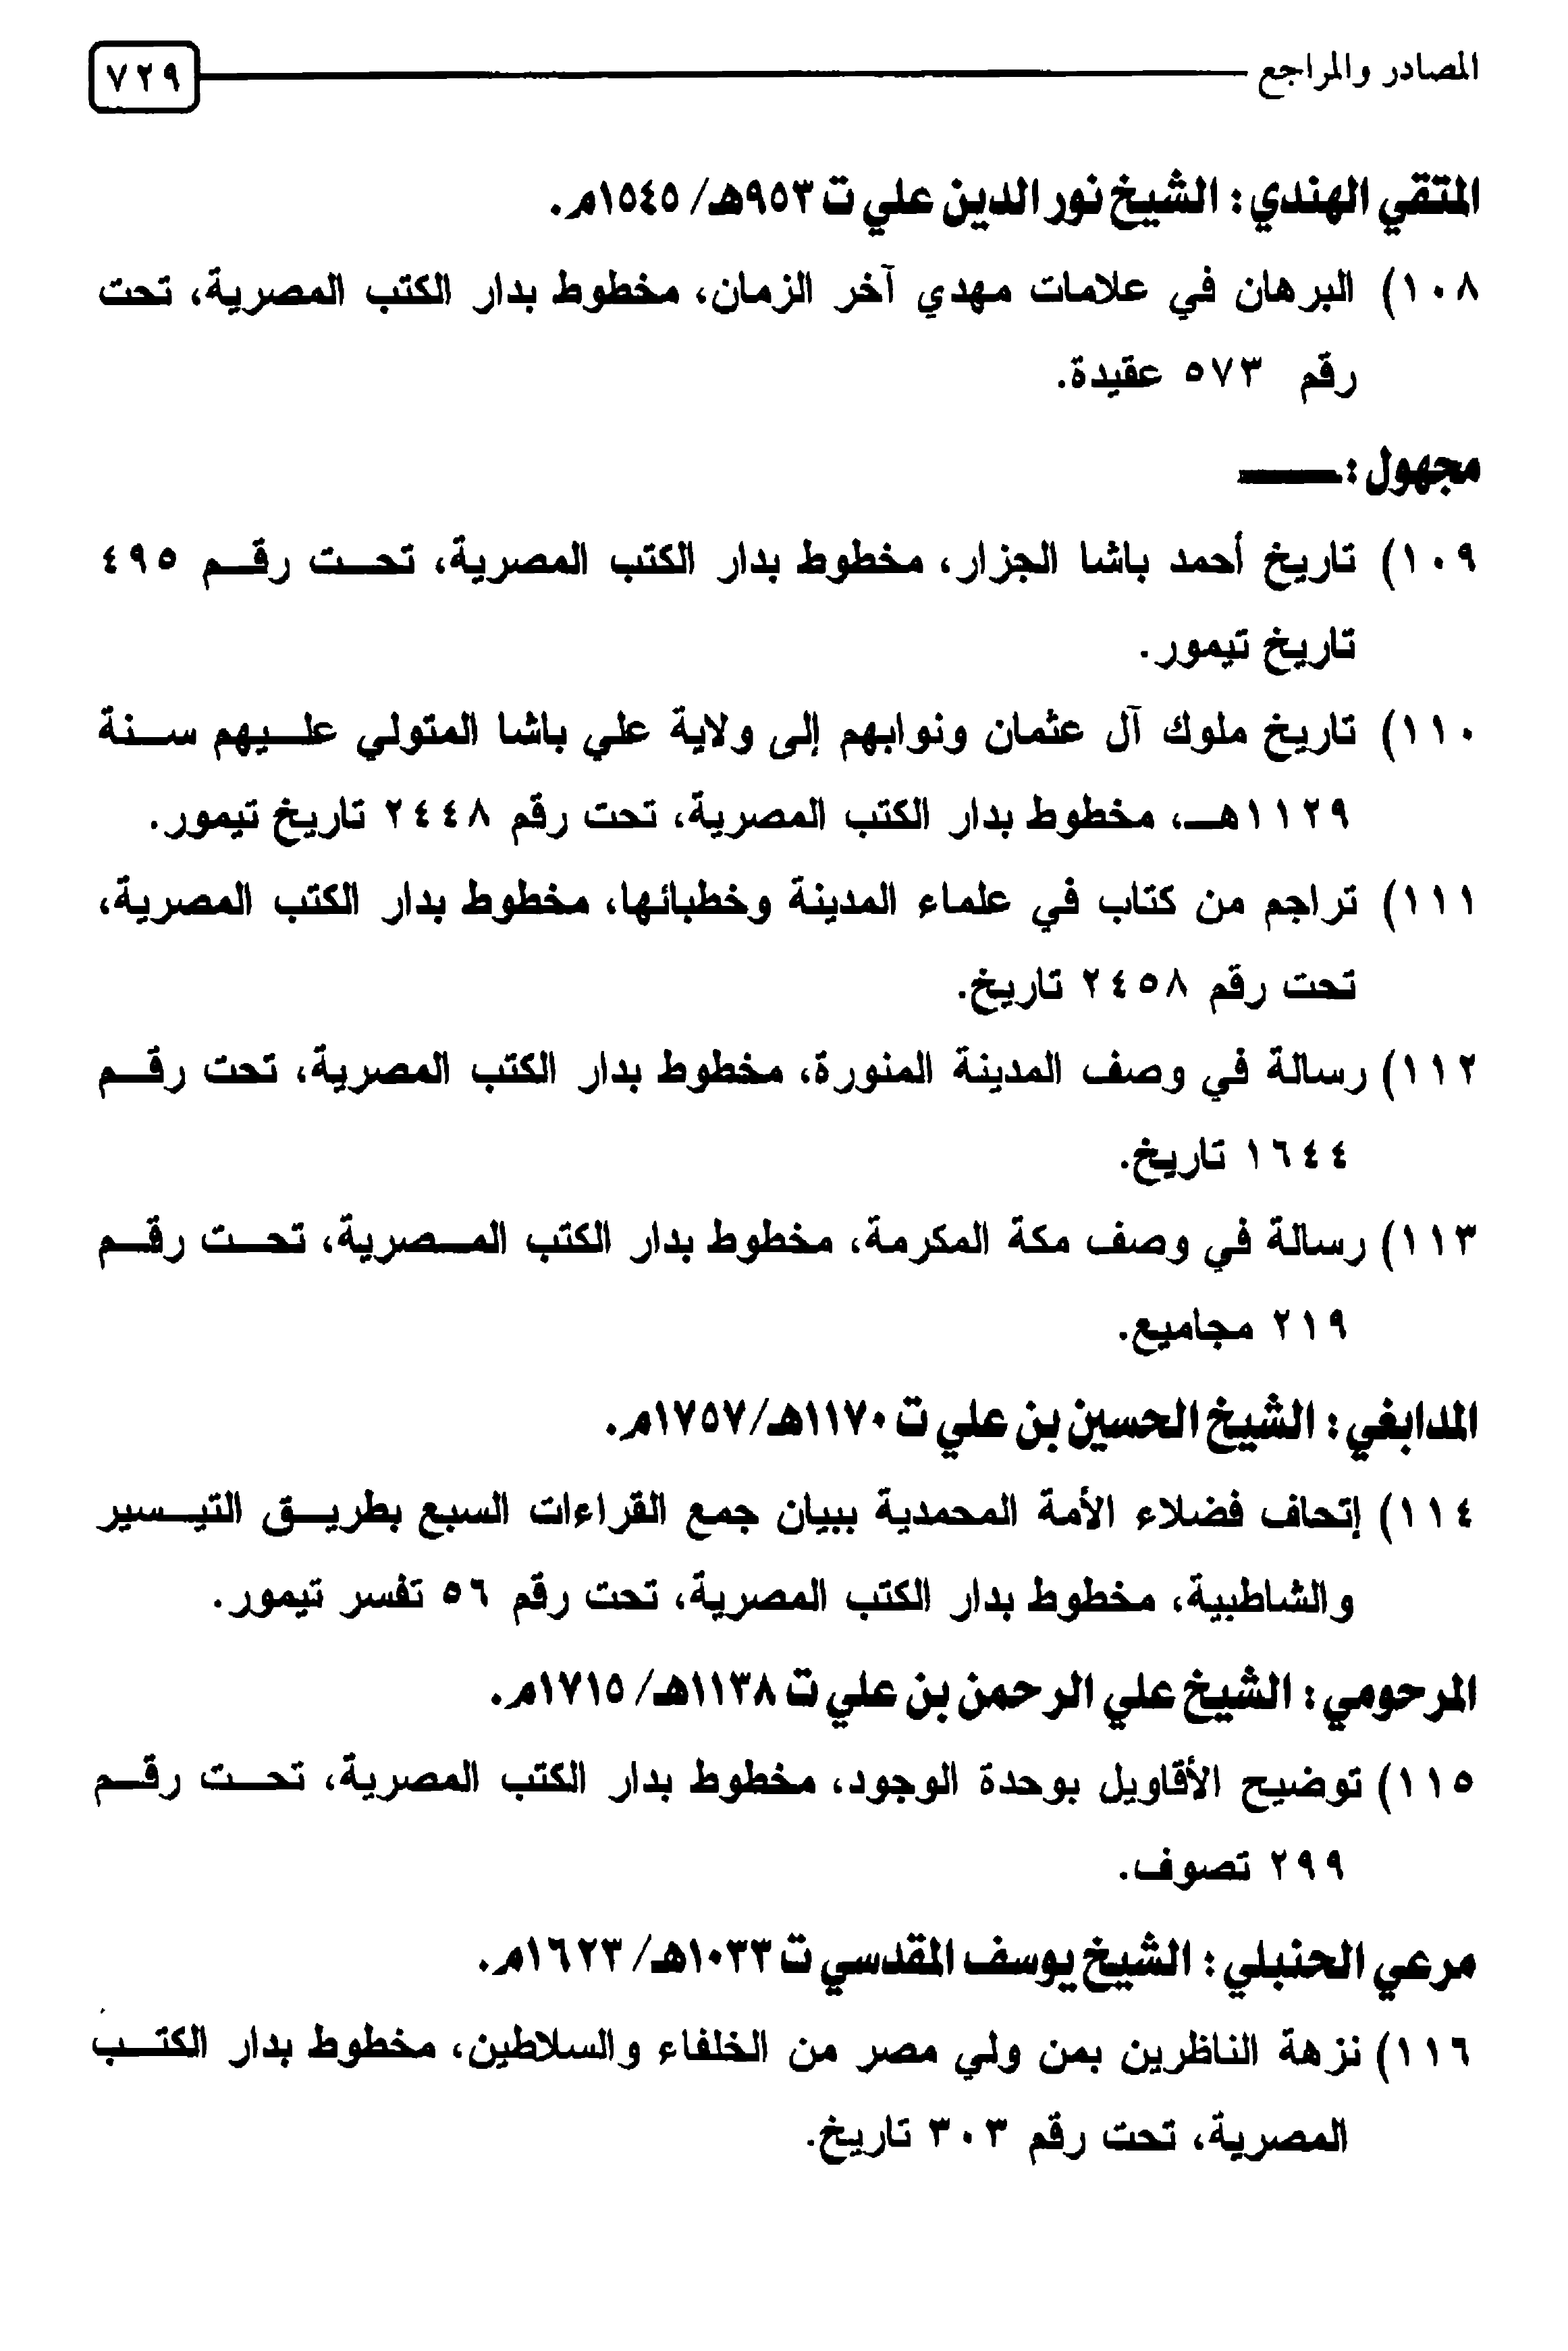 المصادر والمراجع ٧٢٩
المتقي الهندي: الشيخ نور الدين علي ت ٩٥٣هـ/ ١٥٤٥م.
١٠٨) البرهان في علامات مهدي آخر الزمان، مخطوط بدار الكتب المصرية، تحت
رقم ٥٧٣ عقيدة.
مجهول: ــــــ
١٠٩) تاريخ أحمد باشا الجزار، مخطوط بدار الكتب المصرية، تحـت رقـم ٤٩٥
تاريخ تيمور.
١١٠) تاريخ ملوك آل عثمان ونوابهم إلى ولاية علي باشا المتولي علـيهم سـنة
١١٢٩هـ، مخطوط بدار الكتب المصرية، تحت رقم ٢٤٤٨ تاريخ تيمور.
١١١) تراجم من كتاب في علماء المدينة وخطبائها، مخطوط بدار الكتب المصرية،
تحت رقم ٢٤٥٨ تاريخ.
١١٢) رسالة في وصف المدينة المنورة، مخطوط بدار الكتب المصرية، تحت رقـم
١٦٤٤ تاريخ.
١١٣) رسالة في وصف مكة المكرمة، مخطوط بدار الكتب المـصرية، تحـت رقـم
٢١٩ مجاميع.
المدابغي: الشيخ الحسين بن علي ت ١١٧٠هـ/١٧٥٧م.
١١٤) إتحاف فضلاء الأمة المحمدية ببيان جمع القراءات السبع بطريـق التيـسير
والشاطبية، مخطوط بدار الكتب المصرية، تحت رقم ٥٦ تفسر تيمور.
المرحومي: الشيخ علي الرحمن بن علي ت ١١٣٨هـ/ ١٧١٥م.
١١٥) توضيح الأقاويل بوحدة الوجود، مخطوط بدار الكتب المصرية، تحـت رقـم
٢٩٩ تصوف.
مرعي الحنبلي: الشيخ يوسف المقدسي ت ١٠٣٣هـ/ ١٦٢٣م.
١١٦) نزهة الناظرين بمن ولي مصر من الخلفاء والسلاطين، مخطوط بدار الكتـب
المصرية، تحت رقم ٣٠٣ تاريخ.